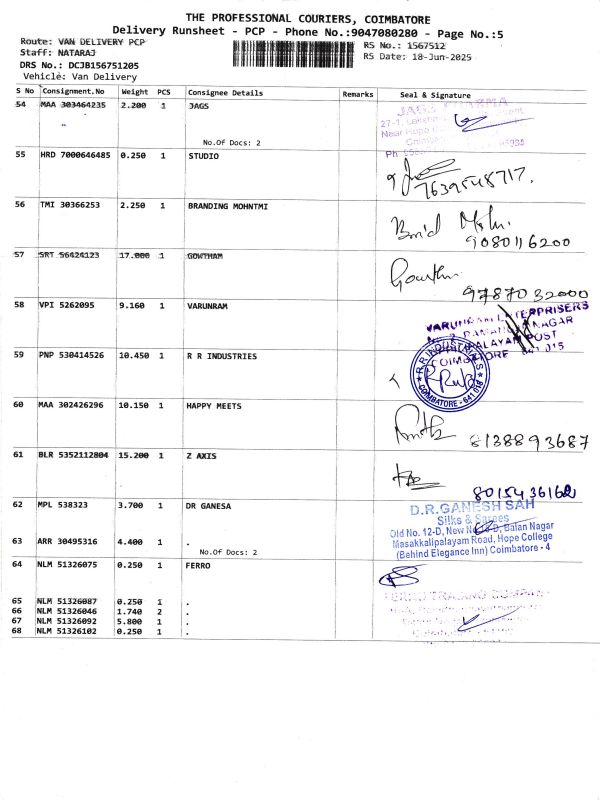 THE PROFESSIONAL COURIERS, COIMBATORE
Delivery Runsheet - PCP - Phone No.:9047080280 - Page No.:5
Route: VAN DELIVERY PCP
RS No.: 1567512
Staff: NATARAJ
RS Date: 18-Jun-2025
DRS No.: DCJB156751205
Vehicle: Van Delivery
S No Consignment.No Weight PCS Consignee Details Remarks Seal & Signature
54 MAA 303464235 2.200 1 JAGS
No.Of Docs: 2
55 HRD 7000646485 0.250 1 STUDIO
7639548717.
56 TMI 30366253 2.250 1 BRANDING MOHNTMI
9080116200
57 SRT 56424123 17.000 1 GOWTHAM
Gowthm
9787032000
58 VPI 5262095 9.160 1 VARUNRAM
ENTERPRISERS
NAGAR
POST
COIMBATORE 641 015
59 PNP 530414526 10.450 1 R R INDUSTRIES
R.R INDUSTRIALS
COIMBATORE - 641 016
60 MAA 302426296 10.150 1 HAPPY MEETS
8138893687
61 BLR 5352112804 15.200 1 Z AXIS
8015436162
62 MPL 538323 3.700 1 DR GANESA
D.R.GANESH SAH
Silks & Sarees
Old No. 12-D, New No. D, Balan Nagar
Masakkalipalayam Road, Hope College
(Behind Elegance Inn) Coimbatore - 4
63 ARR 30495316 4.400 1 .
No.Of Docs: 2
64 NLM 51326075 0.250 1 FERRO
65 NLM 51326087 0.250 1 .
66 NLM 51326046 1.740 2 .
67 NLM 51326092 5.800 1 .
68 NLM 51326102 0.250 1 .